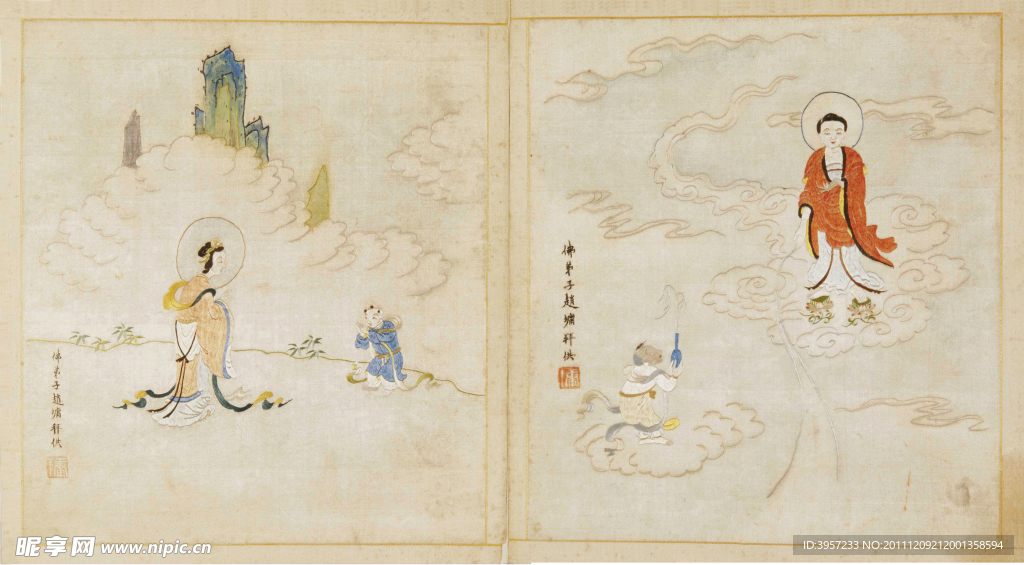 佛弟子趙墉拜供
佛弟子趙墉拜供
昵享网 www.nipic.cn
ID:3957233 NO:20111209212001358594